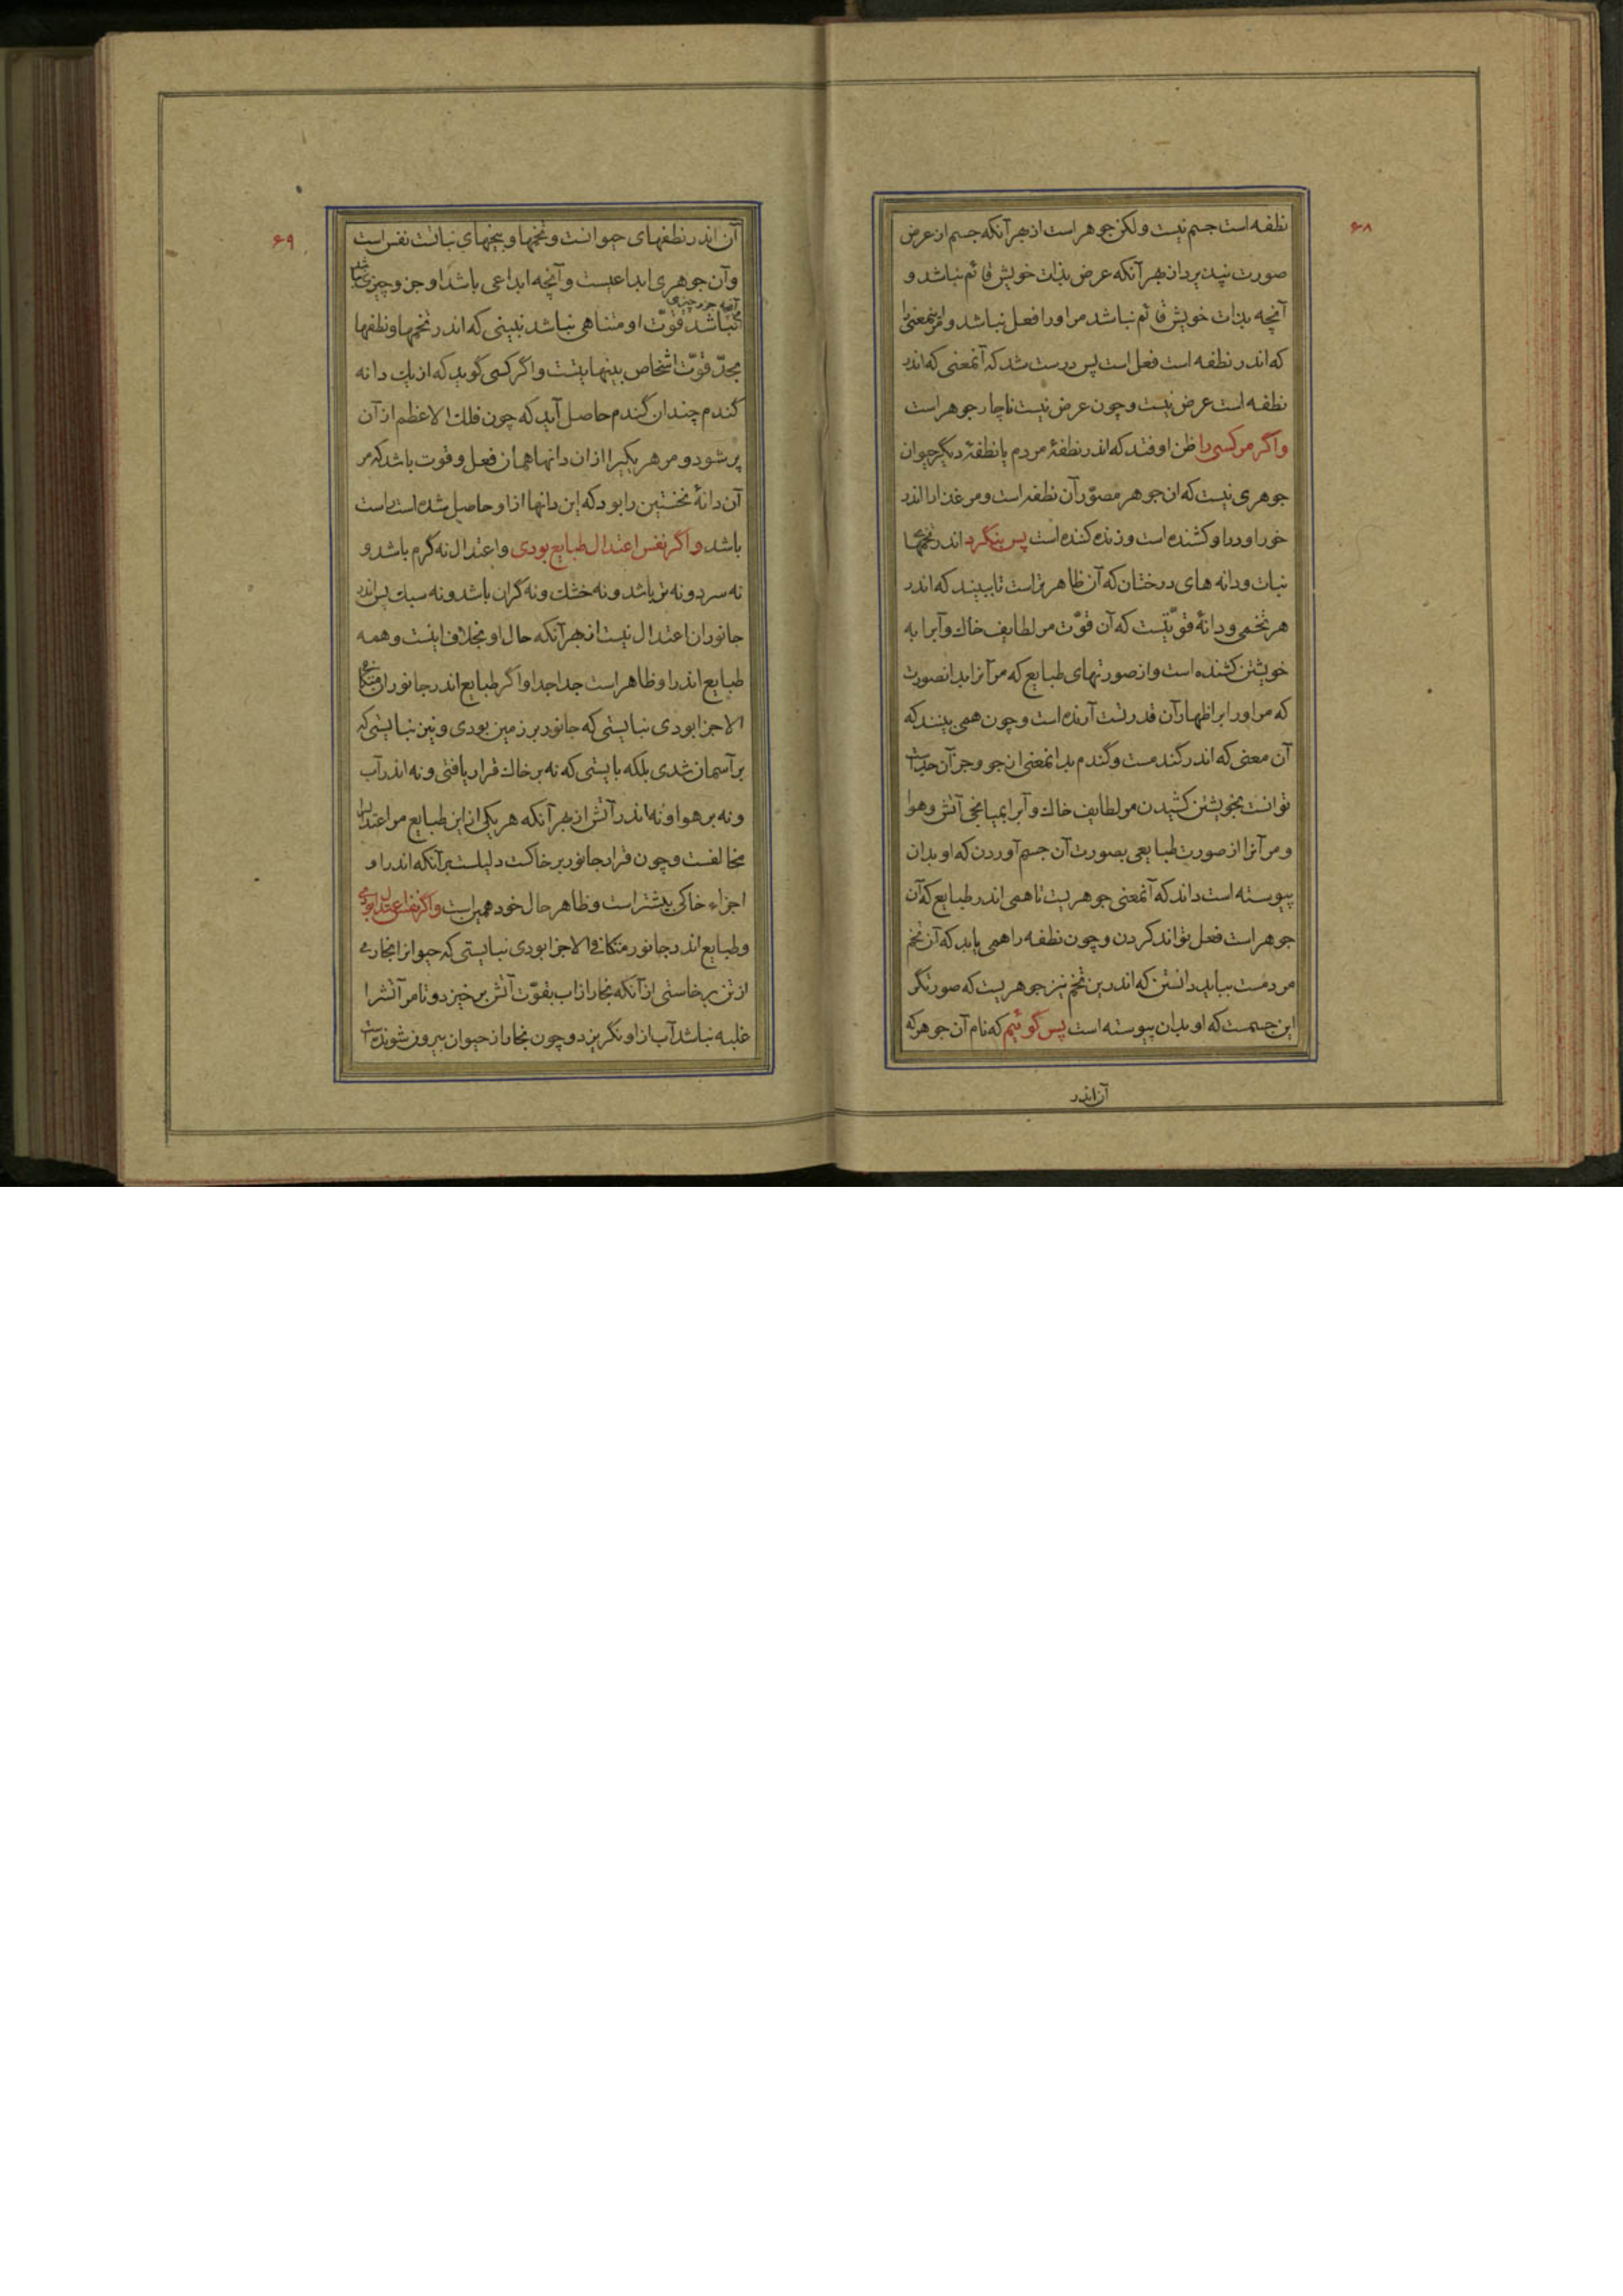 ۶۸
نطفه است جسم نیست ولکن جوهر است از بهر آنکه جسم از عرض
صورت نپذیرد از بهر آنکه عرض بذات خویش قائم نباشد و
آنچه بذات خویش قائم نباشد مر او را فعل نباشد و مر اینمعنی را
که اندر نطفه است فعل است پس درست شد که آنمعنی که اندر
نطفه است عرض نیست و چون عرض نیست ناچار جوهر است
واگر مر کسی را ظن اوفتد که اندر نطفهٔ مردم یا نطفهٔ دیگر حیوان
جوهری نیست که ان جوهر مصوّر آن نطفه است و مر غذا را اندر
خوراورد او کشنده است و زنده کننده است پس بنگرد اندر تخمها
نبات و دانه های درختان که آن ظاهرتر است تا ببیند که اندر
هر تخمی و دانهٔ قوّتیست که آن قوّت مر لطایف خاك و آبرا به
خویشتن کشنده است و از صورتهای طبایع که مر آنرا بدانصورت
که مر او را بر اظهار آن قدرتست آرنده است و چون همی بینند که
آن معنی که اندر گندمست و گندم بدانمعنی از جو و جز آن جداست
توانست بخویشتن کشیدن مر لطایف خاك و آبرا بمیانجی آتش و هوا
و مر آنرا از صورت طبایعی بصورت آن جسم آوردن که او بدان
پیوسته است داند که آنمعنی جوهریست تا همی اندر طبایع که آن
جوهر است فعل تواند کردن و چون نطفه را همی یابد که آن تخم
مردمست بباید دانستن که اندرین تخم نیز جوهریست که صورتگر
این جسمست که او بدان پیوسته است پس گوئیم که نام آن جوهر که
آن اندر
۶۹
آن اندر نطفهای حیوانست و تخمها و بیخهای نباتست نفس است
وآن جوهری ابداعیست و آنچه ابداعی باشد او جزو چیزی
آنچه جزو چیزی
نباشد قوّت او متناهی نباشد نبینی که اندر تخمها و نطفها
بحدّ قوّت اشخاص بینهایتست واگر کسی گوید که از یك دانه
گندم چندان گندم حاصل آید که چون فلك الاعظم از آن
پر شود و مر هر یکیرا از ان دانها همان فعل و قوت باشد که مر
آن دانهٔ نخستین را بود که این دانها از او حاصل شده است راست
باشد واگر نفس اعتدال طبایع بودی و اعتدال نه گرم باشد و
نه سرد و نه تر باشد و نه خشك و نه گران باشد و نه سبك پس اندر
جانوران اعتدال نیست از بهر آنکه حال او بخلاف اینست و همه
طبایع اندر او ظاهر است جدا جدا واگر طبایع اندر جانوران متکافی
الاجزا بودی نبایستی که جانور بر زمین بودی و نیز نبایستی که
بر آسمان شدی بلکه بایستی که نه بر خاك قرار یافتی و نه اندر آب
و نه بر هوا و نه اندر آتش از بهر آنکه هر یکی از این طبایع مر اعتدال را
مخالفست و چون قرار جانور بر خاکست دلیلست بر آنکه اندر او
اجزاء خاکی بیشتر است و ظاهر حال خود همین است واگر نفس اعتدال بودی
وطبایع اندر جانور متکافی الاجزا بودی نبایستی که حیوانرا بخاری
از تن برخاستی از آنکه بخار از اب بقوّت آتش برخیزد و تا مر آتشرا
غلبه نباشد آب از او نگریزد و چون بخار از حیوان بیرون شونده است